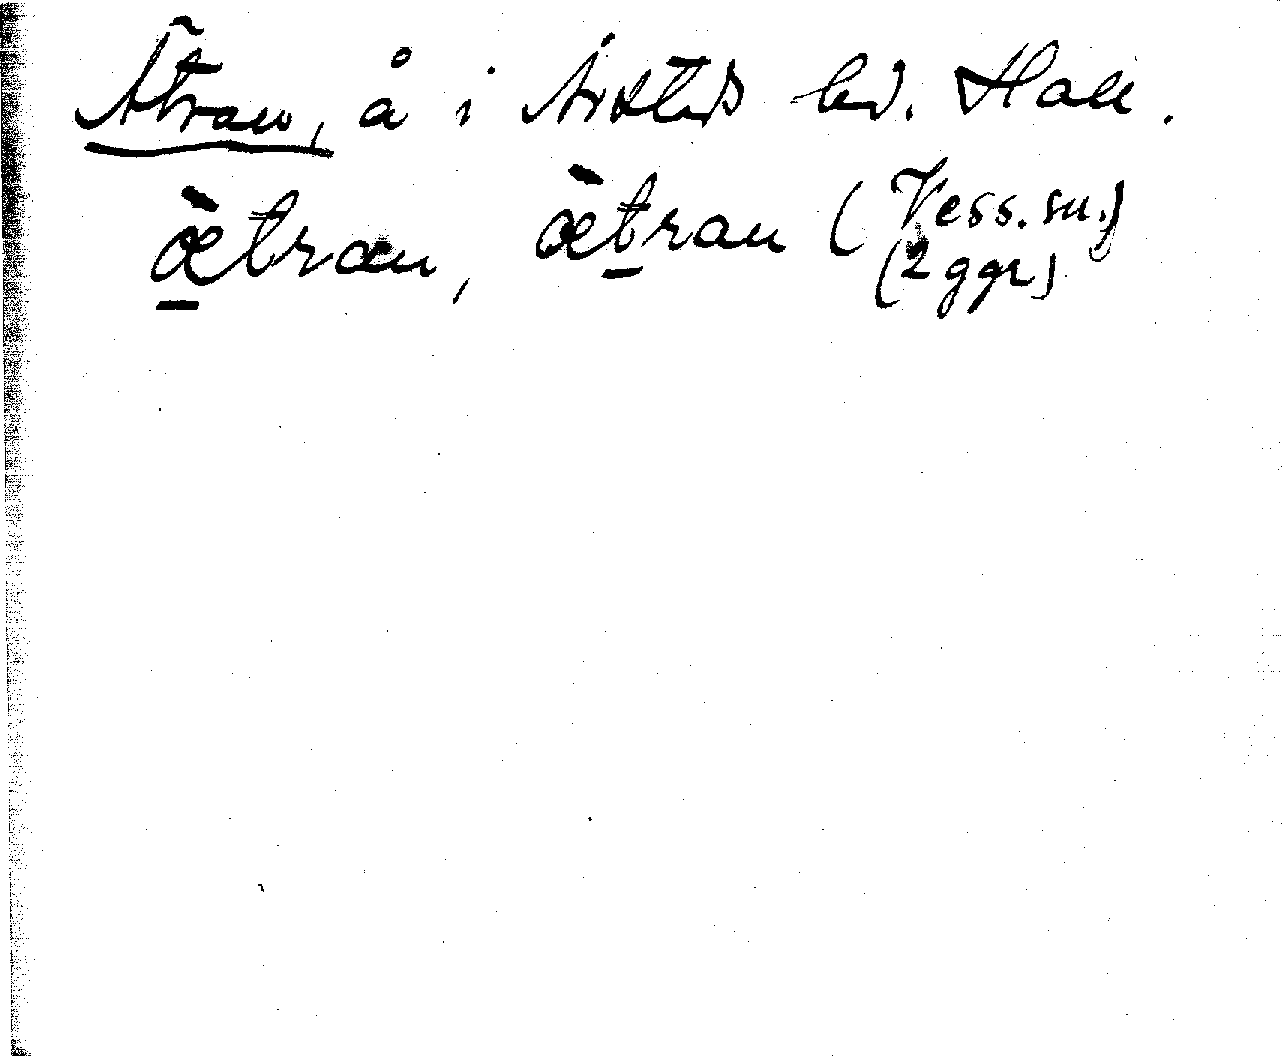 Ätran, å i Årstads hd. Hall.
æ̱̀tran, æ̀ṯran (Vess. sn.)
(2 ggr)